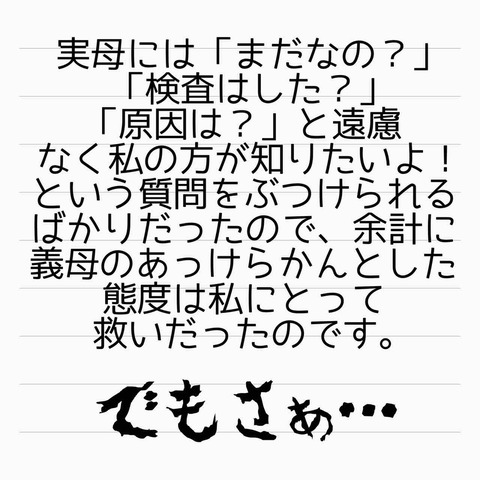 実母には「まだなの？」
「検査はした？」
「原因は？」と遠慮
なく私の方が知りたいよ！
という質問をぶつけられる
ばかりだったので、余計に
義母のあっけらかんとした
態度は私にとって
救いだったのです。
でもさぁ…